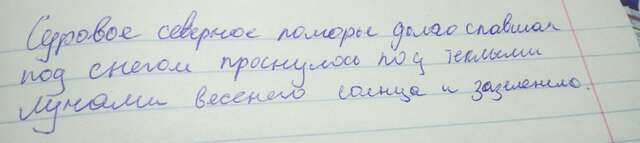 Суровое северное поморье долго спавшая
под снегом проснулось под теплыми
лучами весенего солнца и зазеленело.